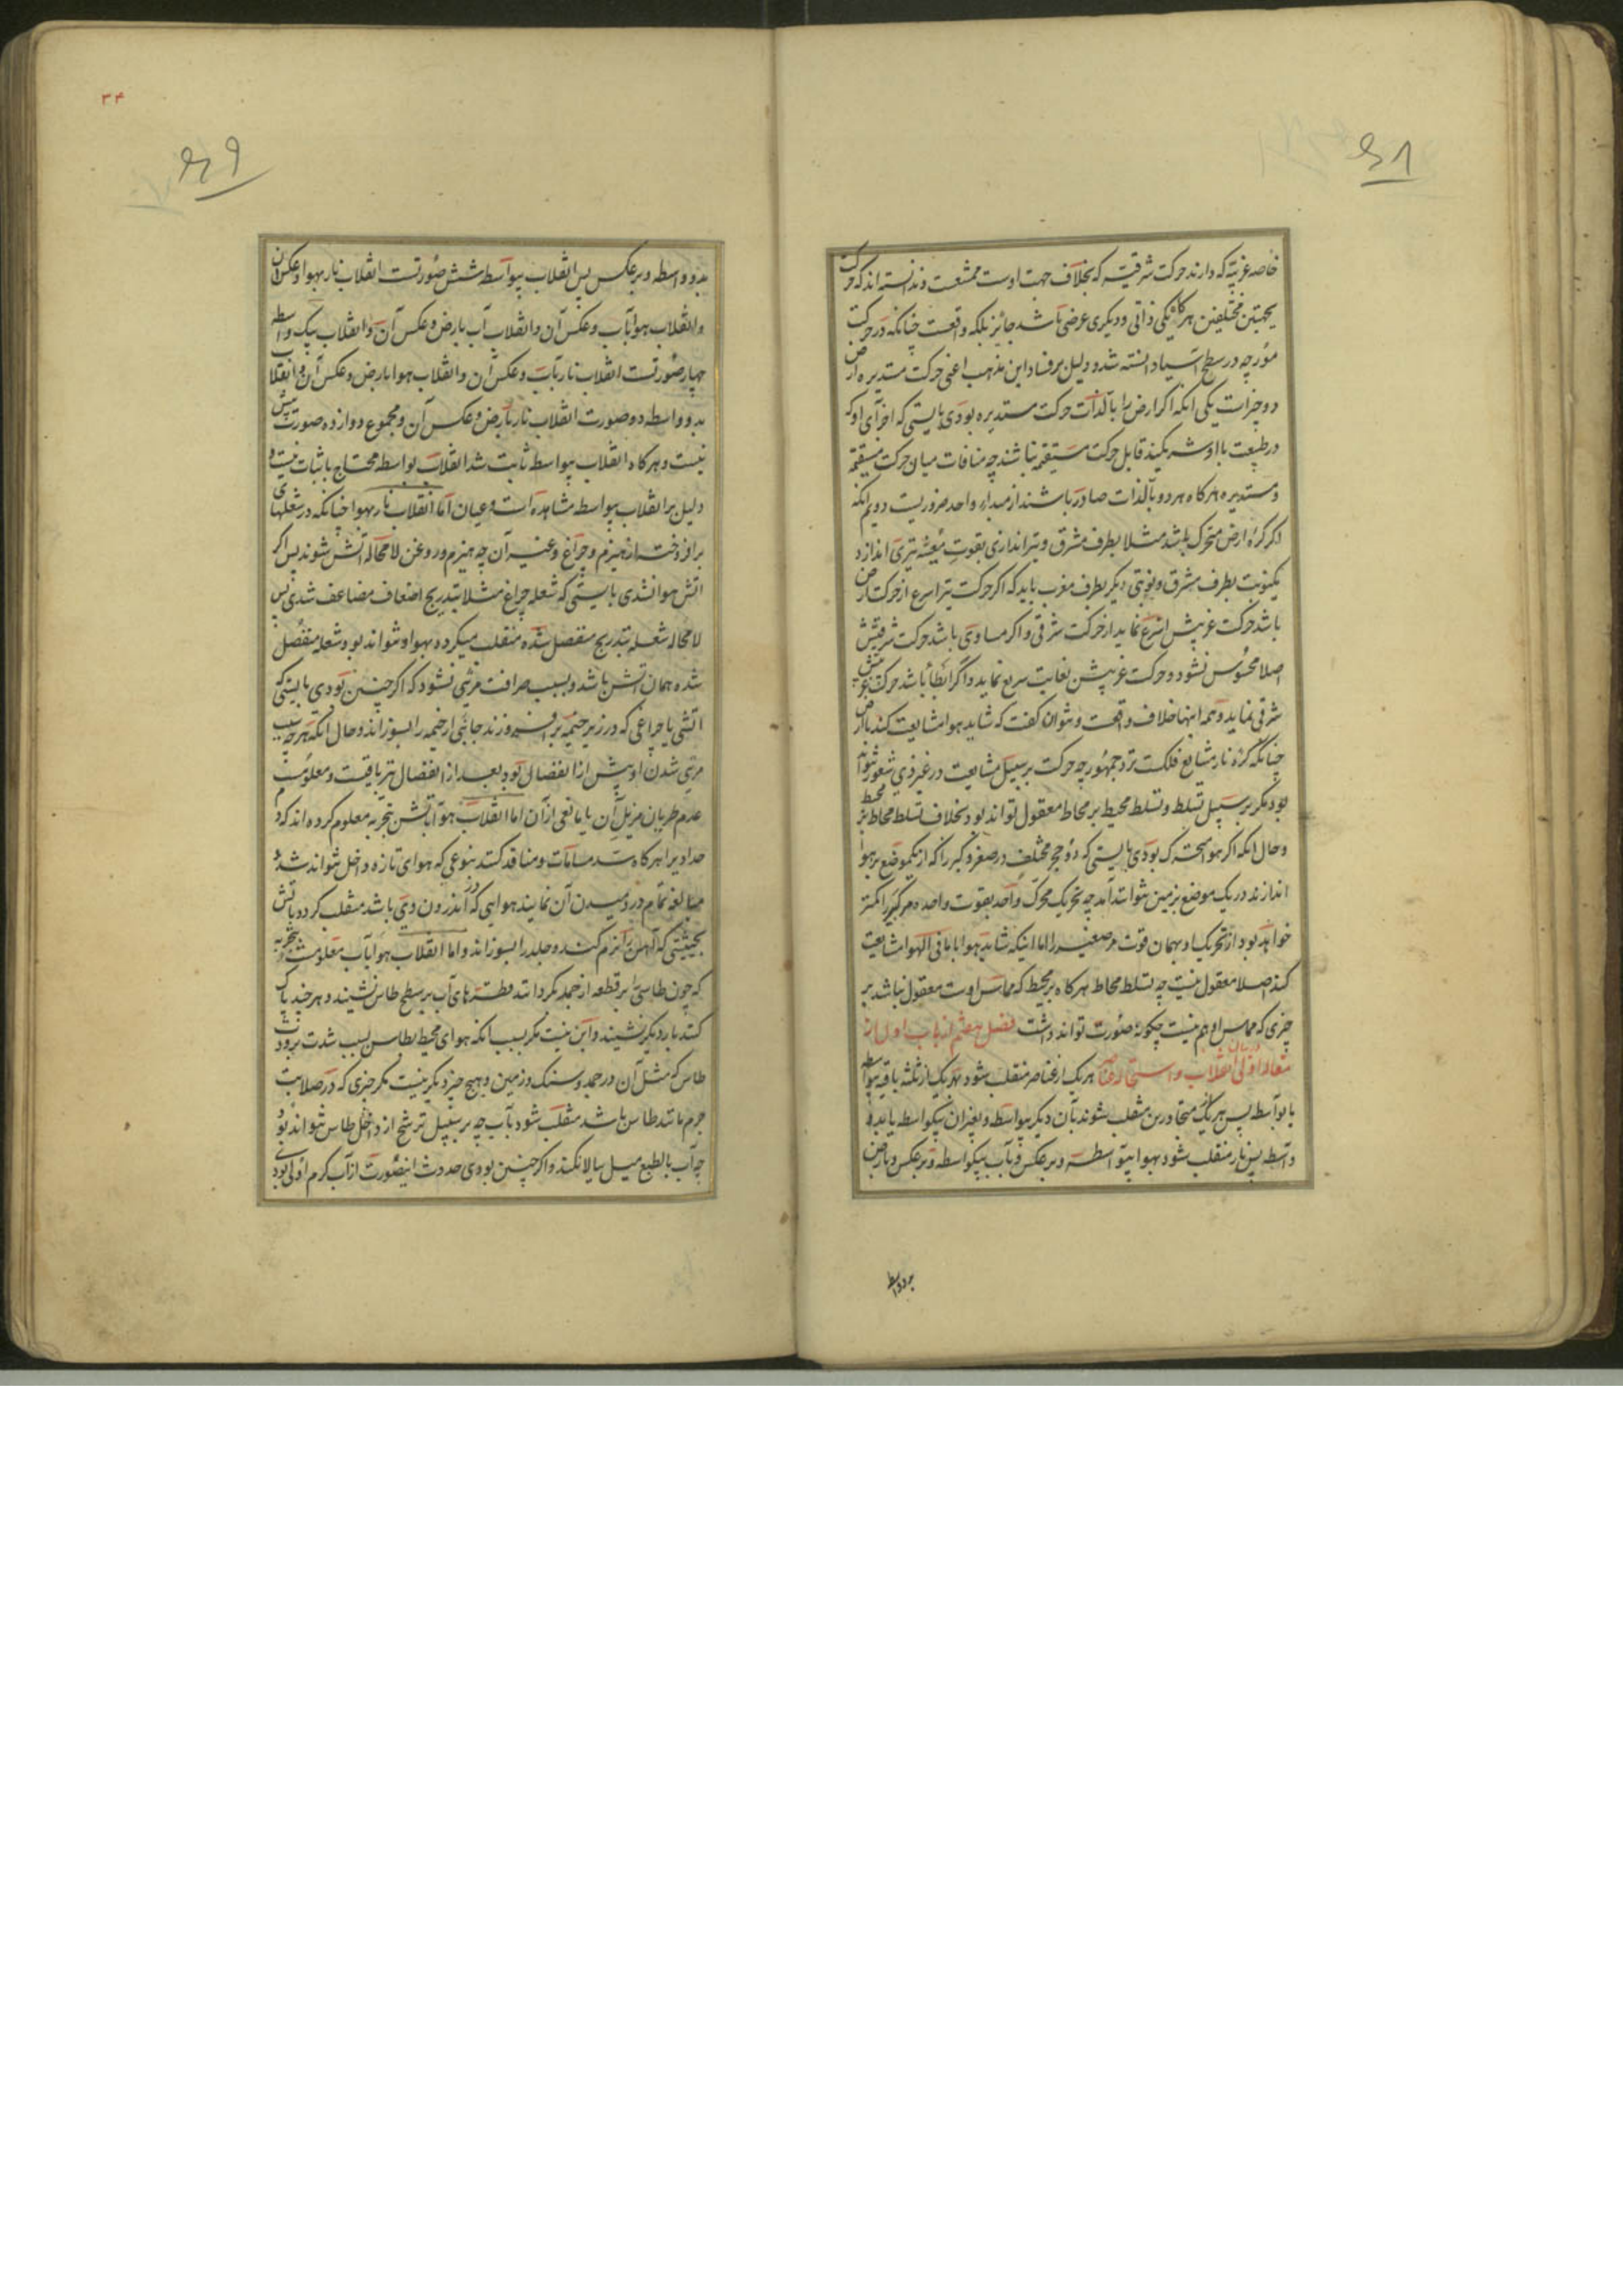 خاصه غربیّه که دارند حرکت شرقیّه که بخلاف جهت اوست ممتنعست و ندانسته‌اند که حرکت
بجهتین مختلفین هرگاه یکی ذاتی و دیگری عرضی باشد جائز بلکه واقعست چنانکه در حرکت
مورچه در سطح آسیا دانسته شد و دلیل بر فساد این مذهب اعنی حرکت مستدیره ارض
دو چیزست یکی آنکه اگر ارض را بالذات حرکت مستدیره بودی بایستی که اجزای او که
در طبیعت با او شریکند قابل حرکت مستقیمه نباشند چه منافات میان حرکت مستقیمه
و مستدیره هرگاه هر دو بالذات صادر باشند از مبداء واحد ضروریست دویم آنکه
اگر کره ارض متحرک باشد مثلا بطرف مشرق و تیراندازی بقوت معینه تیری اندازد
یکنوبت بطرف مشرق و نوبتی دیگر بطرف مغرب باید که اگر حرکت تیر اسرع از حرکت ارض
باشد حرکت غربیش اسرع نماید از حرکت شرقی و اگر مساوی باشد حرکت شرقیش
اصلا محسوس نشود و حرکت غربیش بغایت سریع نماید و اگر ابطأ باشد حرکت غربیش
شرقی نماید و همه اینها خلاف واقعست و نتوان گفت که شاید هوا مشایعت کند با ارض
چنانکه کره نار مشایع فلکست نزد جمهور چه حرکت بر سبیل مشایعت در غیر ذی شعور نتواند
بود مگر بر سبیل تسلط و تسلط محیط بر محاط معقول تواند بود بخلاف تسلط محاط بر محیط
و حال آنکه اگر هوا متحرک بودی بایستی که دو حجر مختلف در صغر و کبر را که از یکموضع بر هوا
اندازند در یک موضع بزمین نتوانند آمد چه تحریک محرک واحد بقوت واحده مر کبیر را کمتر
خواهد بود از تحریک او بهمان قوت مر صغیر را اما اینکه شاید هوا با ما فی الهوا مشایعت
کند اصلا معقول نیست چه تسلط محاط هرگاه بر محیط که مماس اوست معقول نباشد بر
چیزی که مماس او هم نیست چگونه صورت تواند داشت فصل هفتم از باب اول از
مقاله اولی در بیان انقلاب و استحاله عناصر هر یک از عناصر منقلب شود بهر یک از ثلثه باقیه بیواسطه
یا بواسطه پس هر یک متجاورین منقلب شوند بآن دیگر بیواسطه و بغیر آن بیکواسطه یا بدو
واسطه پس نار منقلب شود بهوا بیواسطه و بر عکس و بآب بیکواسطه و بر عکس و بارض
بدو واسطه
۳۴
بدو واسطه و بر عکس پس انقلاب بیواسطه شش صورتست انقلاب نار بهوا و عکس آن
و انقلاب هوا بآب و عکس آن و انقلاب آب بارض و عکس آن و انقلاب بیک واسطه
چهار صورتست انقلاب نار بآب و عکس آن و انقلاب هوا بارض و عکس آن و انقلاب
بدو واسطه دو صورت انقلاب نار بارض و عکس آن و مجموع دوازده صورت بیش
نیست و هرگاه انقلاب بیواسطه ثابت شد انقلاب بواسطه محتاج باثبات نیست و
دلیل بر انقلاب بیواسطه مشاهده است و عیان اما انقلاب نار بهوا چنانکه در شعلهای
برافروخته از هیزم و چراغ و غیر آن چه هیزم و روغن لامحاله آتش شوند پس اگر
آتش هوا نشدی بایستی که شعله چراغ مثلا بتدریج اضعاف مضاعف شدی پس
لامحاله شعله بتدریج منفصل شده منقلب میگردد بهوا و نتواند بود شعله منفصل
شده همان آتش باشد و بسبب صرافت مرئی نشود که اگر چنین بودی بایستی که
آتشی یا چراغی که در زیر خیمه برافروزند جانبی از خیمه را بسوزاند و حال آنکه هر چه سبب
مرئی شدن او پیش از انفصال بود بعد از انفصال نیز باقیست و معلومست
عدم طریان مزیل آن یا مانعی از آن اما انقلاب هوا بآتش بتجربه معلوم کرده‌اند که دم
حدادیرا هرگاه سد مسامات و منافذ کنند بنوعی که هوای تازه داخل نتواند شد و
مبالغه تمام در دمیدن آن نمایند هوایی که در اندرون وی باشد منقلب گردد بآتش
بحیثیتی که آهن را نرم کند و جلد را بسوزاند و اما انقلاب هوا بآب معلومست بتجربه
که چون طاسی را بر قطعه از جمد نگردانند قطرهای آب بر سطح طاس نشیند و هر چند پاک
کنند بار دیگر نشیند و این نیست مگر بسبب آنکه هوای محیط بطاس بسبب شدت برودت
طاس که مثل آن در جمد و سنگ و زمین و هیچ چیز دیگر نیست مگر چیزی که در صلابت
جرم مانند طاس باشد منقلب شود بآب چه بر سبیل ترشح از داخل طاس نتواند بود
چه آب بالطبع میل ببالا نکند و اگر چنین بودی حدوث اینصورت از آب گرم اولی بود